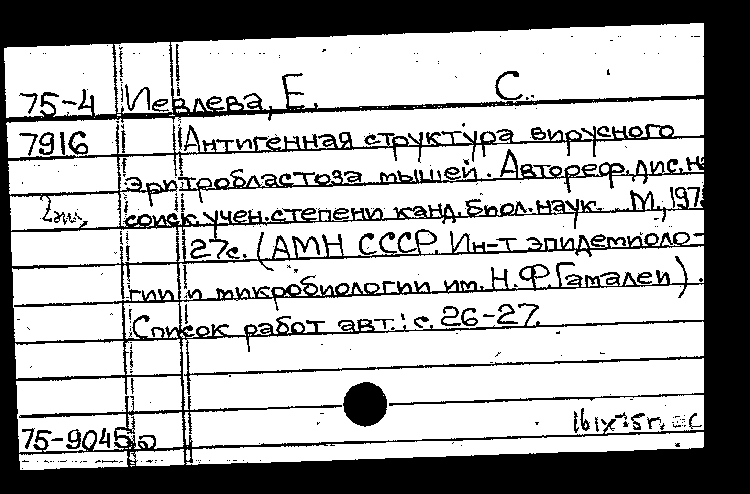 75-4 Иевлева, Е. С.
7916 Антигенная структура вирусного
эритробластоза мышей. Автореф. дис. на
2 экз. соиск. учен. степени канд. биол. наук. М., 1975
27 с. (АМН СССР. Ин-т эпидемиоло-
гии и микробиологии им. Н.Ф. Гамалеи).
Список работ авт.: с. 26-27.
75-9045